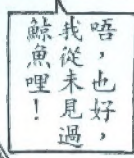 唔，也好，
我從未見過
鯨魚哩！